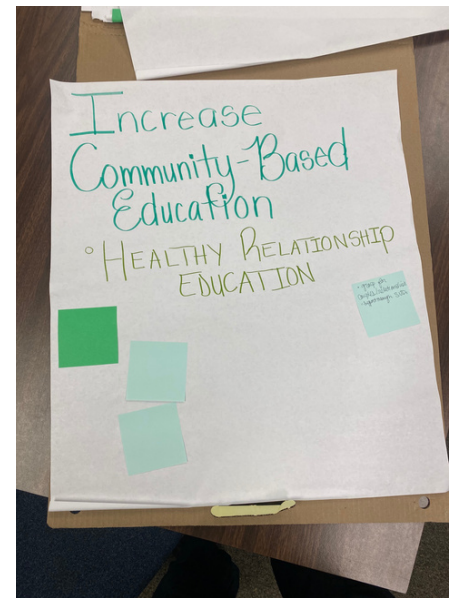 Increase
Community-Based
Education
° HEALTHY RELATIONSHIP
EDUCATION